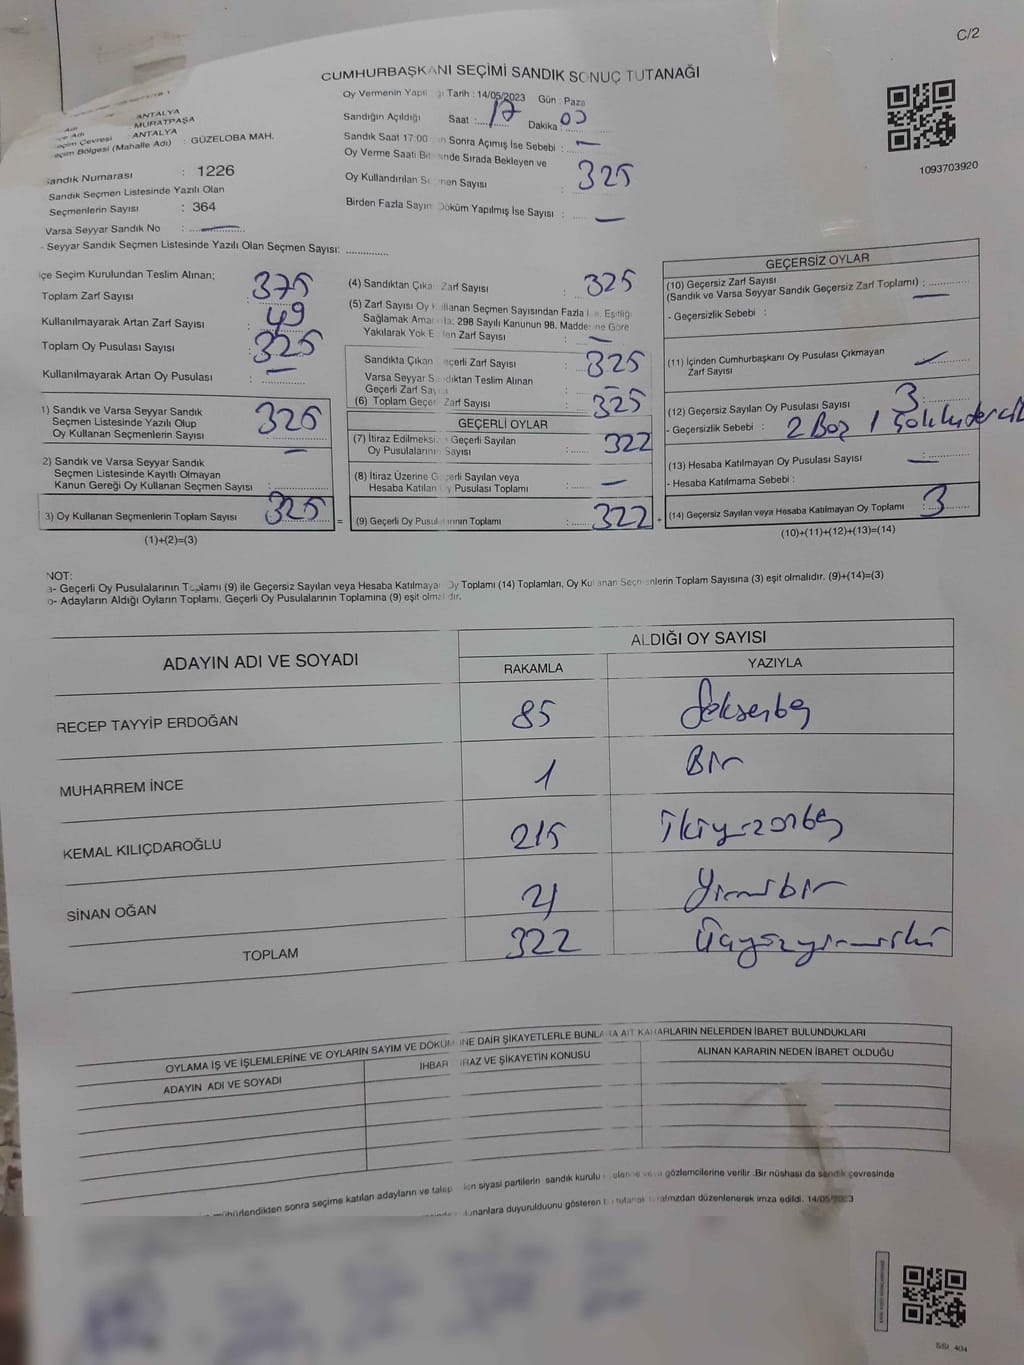 C/2
CUMHURBAŞKANI SEÇİMİ SANDIK SONUÇ TUTANAĞI
Oy Vermenin Yapıl ğı Tarih : 14/05/2023 Gün : Paza
ANTALYA
MURATPAŞA
ANTALYA
Seçim Bölgesi (Mahalle Adı) : GÜZELOBA MAH.
Sandık Numarası : 1226
Sandık Seçmen Listesinde Yazılı Olan
Seçmenlerin Sayısı : 364
Varsa Seyyar Sandık No : —
- Seyyar Sandık Seçmen Listesinde Yazılı Olan Seçmen Sayısı: ..............
Sandığın Açıldığı Saat : 17 Dakika : 00
Sandık Saat 17:00 n Sonra Açımış İse Sebebi : —
Oy Verme Saati Bit nde Sırada Bekleyen ve
Oy Kullandırılan Seçmen Sayısı : 325
Birden Fazla Sayım Döküm Yapılmış İse Sayısı : —
1093703920
İlçe Seçim Kurulundan Teslim Alınan;
Toplam Zarf Sayısı : 375
Kullanılmayarak Artan Zarf Sayısı : 49
Toplam Oy Pusulası Sayısı : 325
Kullanılmayarak Artan Oy Pusulası : —
1) Sandık ve Varsa Seyyar Sandık
Seçmen Listesinde Yazılı Olup
Oy Kullanan Seçmenlerin Sayısı 325
2) Sandık ve Varsa Seyyar Sandık
Seçmen Listesinde Kayıtlı Olmayan
Kanun Gereği Oy Kullanan Seçmen Sayısı : —
3) Oy Kullanan Seçmenlerin Toplam Sayısı 325 =
(1)+(2)=(3)
(4) Sandıktan Çıkan Zarf Sayısı : 325
(5) Zarf Sayısı Oy Kullanan Seçmen Sayısından Fazla İse, Eşitliği
Sağlamak Amacıyla; 298 Sayılı Kanunun 98. Maddesine Göre
Yakılarak Yok Edilen Zarf Sayısı : —
Sandıkta Çıkan Geçerli Zarf Sayısı : 325
Varsa Seyyar Sandıktan Teslim Alınan
Geçerli Zarf Sayısı : —
(6) Toplam Geçerli Zarf Sayısı : 325
GEÇERLİ OYLAR
(7) İtiraz Edilmeksizin Geçerli Sayılan
Oy Pusulalarının Sayısı : 322
(8) İtiraz Üzerine Geçerli Sayılan veya
Hesaba Katılan Oy Pusulası Toplamı : —
(9) Geçerli Oy Pusulalarının Toplamı : 322 +
GEÇERSİZ OYLAR
(10) Geçersiz Zarf Sayısı
(Sandık ve Varsa Seyyar Sandık Geçersiz Zarf Toplamı) : —
- Geçersizlik Sebebi :
(11) İçinden Cumhurbaşkanı Oy Pusulası Çıkmayan
Zarf Sayısı —
(12) Geçersiz Sayılan Oy Pusulası Sayısı : 3
- Geçersizlik Sebebi : 2 Boş 1
(13) Hesaba Katılmayan Oy Pusulası Sayısı : —
- Hesaba Katılmama Sebebi :
(14) Geçersiz Sayılan veya Hesaba Katılmayan Oy Toplamı : 3
(10)+(11)+(12)+(13)=(14)
NOT:
a- Geçerli Oy Pusulalarının Toplamı (9) ile Geçersiz Sayılan veya Hesaba Katılmayan Oy Toplamı (14) Toplamları, Oy Kullanan Seçmenlerin Toplam Sayısına (3) eşit olmalıdır. (9)+(14)=(3)
b- Adayların Aldığı Oyların Toplamı, Geçerli Oy Pusulalarının Toplamına (9) eşit olmalıdır.
ADAYIN ADI VE SOYADI
ALDIĞI OY SAYISI
RAKAMLA YAZIYLA
RECEP TAYYİP ERDOĞAN 85 Seksenbeş
MUHARREM İNCE 1 Bir
KEMAL KILIÇDAROĞLU 215 ikiyüzonbeş
SİNAN OĞAN 21 Yirmibir
TOPLAM 322 Üçyüzyirmiiki
OYLAMA İŞ VE İŞLEMLERİNE VE OYLARIN SAYIM VE DÖKÜMÜNE DAİR ŞİKAYETLERLE BUNLARA AİT KARARLARIN NELERDEN İBARET BULUNDUKLARI
ADAYIN ADI VE SOYADI
İHBAR İRAZ VE ŞİKAYETİN KONUSU
ALINAN KARARIN NEDEN İBARET OLDUĞU
mühürlendikten sonra seçime katılan adayların ve talep en siyasi partilerin sandık kurulu gözlemcilerine verilir .Bir nüshası da sandık çevresinde
lunanlara duyurulduunu gösteren tutanak tarafımızdan düzenlenerek imza edildi. 14/05/2023
SSI_404